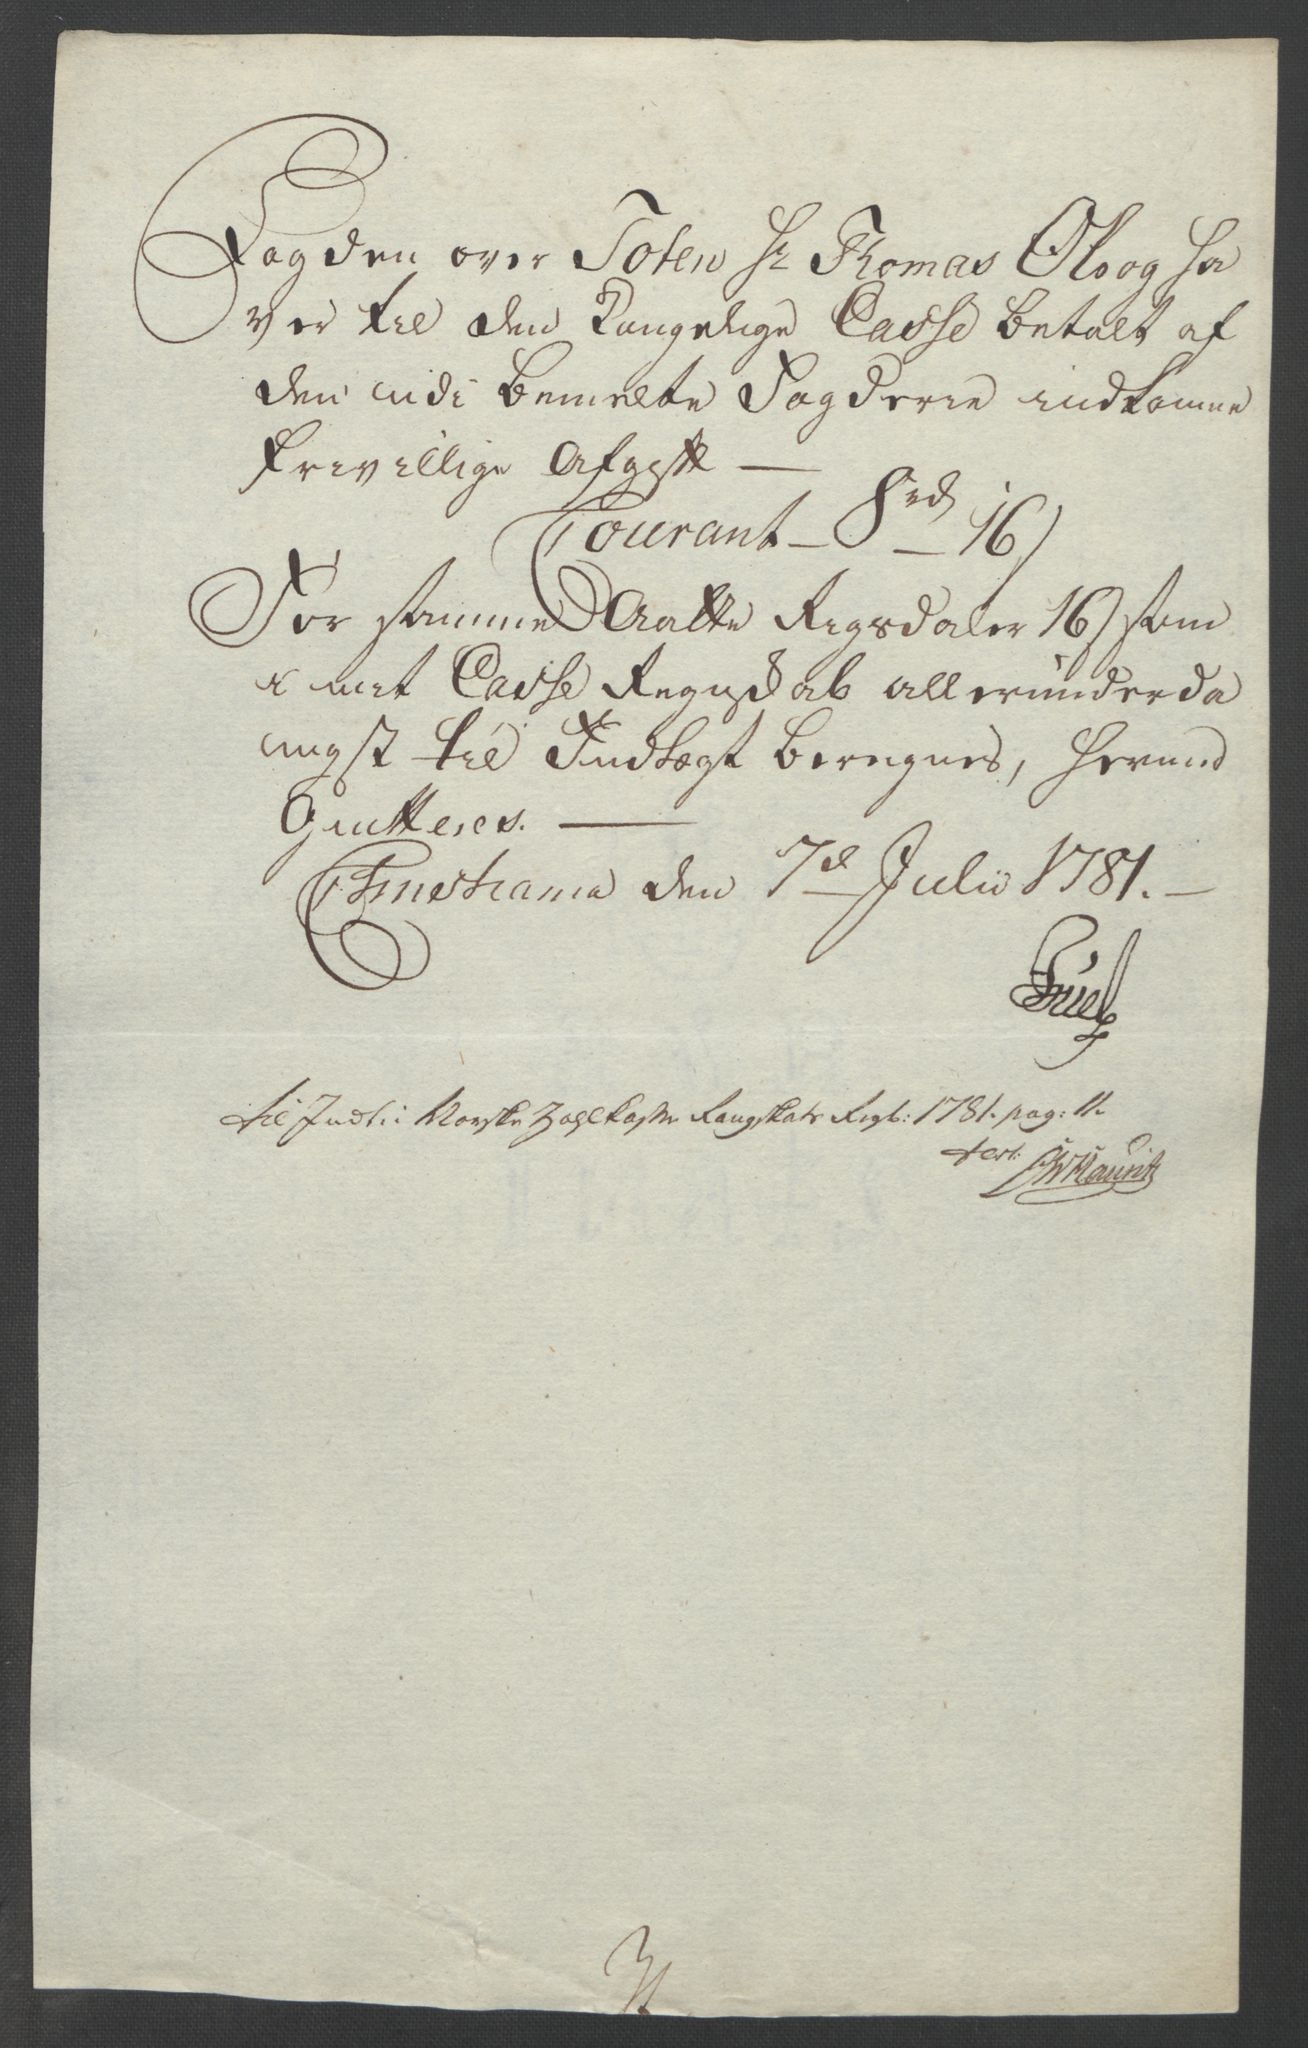 Fogden over Toten Hr Thomas Oloog ha
ver til den Kongelige Casse betalt af
den udi bemelte Fogderie indkomne
frivillige Afgift —
Courant — 8 rd — 16 s
For samme Aatte Rigsdaler 16 s som
i mit Casse Regnskab allerunderda
nigst til Indtægt beregnes, herved
Qvitteres. —
Christiania den 7d Julii 1781. —
Juel
til Indt: i Norske Zahlkasse Rangskats Regb: 1781. pag: 11.
test: